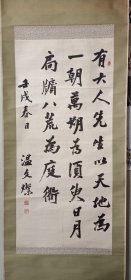 有大人先生以天地為
一朝萬期為須臾日月
扃牖八荒為庭衢
壬戌春日 温文燦